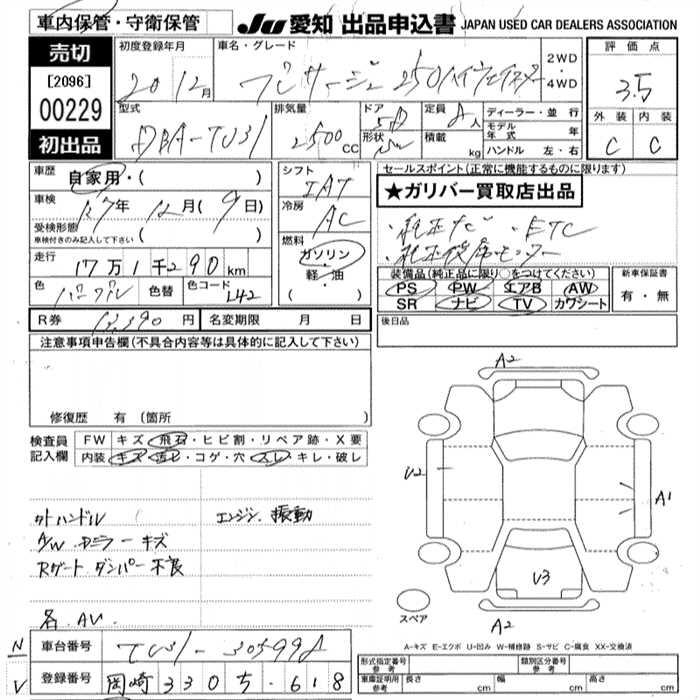 車内保管・守衛保管
JU 愛知 出品申込書 JAPAN USED CAR DEALERS ASSOCIATION
売切
[2096]
00229
初出品
初度登録年月 車名・グレード 2WD ・ 4WD
20 12月 プレサージュ 250ハイウェイスター
評価点
3.5
外装 内装
C C
型式 排気量 ドア 形状 定員 積載
DBA-TU31 2500cc 5D 8人 kg
ディーラー・並行
モデル年式 年
ハンドル 左・右
車歴 自家用・( )
車検 17年 12月( 9日)
受検形態
車検付きのみ記入して下さい ( )
走行 17万1千290km
色 パープル 色替 色コード L42
シフト
IAT
冷房
AC
燃料
ガソリン
・
軽・油
( )
セールスポイント(正常に機能するものに限ります)
★ガリバー買取店出品
・純正ナビ ・ETC
・純正後席モニター
装備品(純正品に限り○をつけてください)
PS PW エアB AW
SR ナビ TV カワシート
新車保証書
有・無
R券 12,390円 名変期限 月 日
後日品
注意事項申告欄(不具合内容等は具体的に記入して下さい)
修復歴 有(箇所 )
検査員記入欄
FW キズ・飛石・ヒビ割・リペア跡・X要
内装 キズ・汚レ・コゲ・穴・スレ・キレ・破レ
外ハンドル
A/W キズ
Rゲート ダンパー 不良
各AU.
エンジン 振動
A2
U2
A1
U3
A2
スペア
A-キズ E-エクボ U-凹み W-補修跡 S-サビ C-腐食 XX-交換済
N
V
車台番号 TU31-305998
登録番号 岡崎 330 ち・618
形式指定番号 参考 類別区分番号 参考
車庫証明用 参考 長さ cm 幅 cm 高さ cm